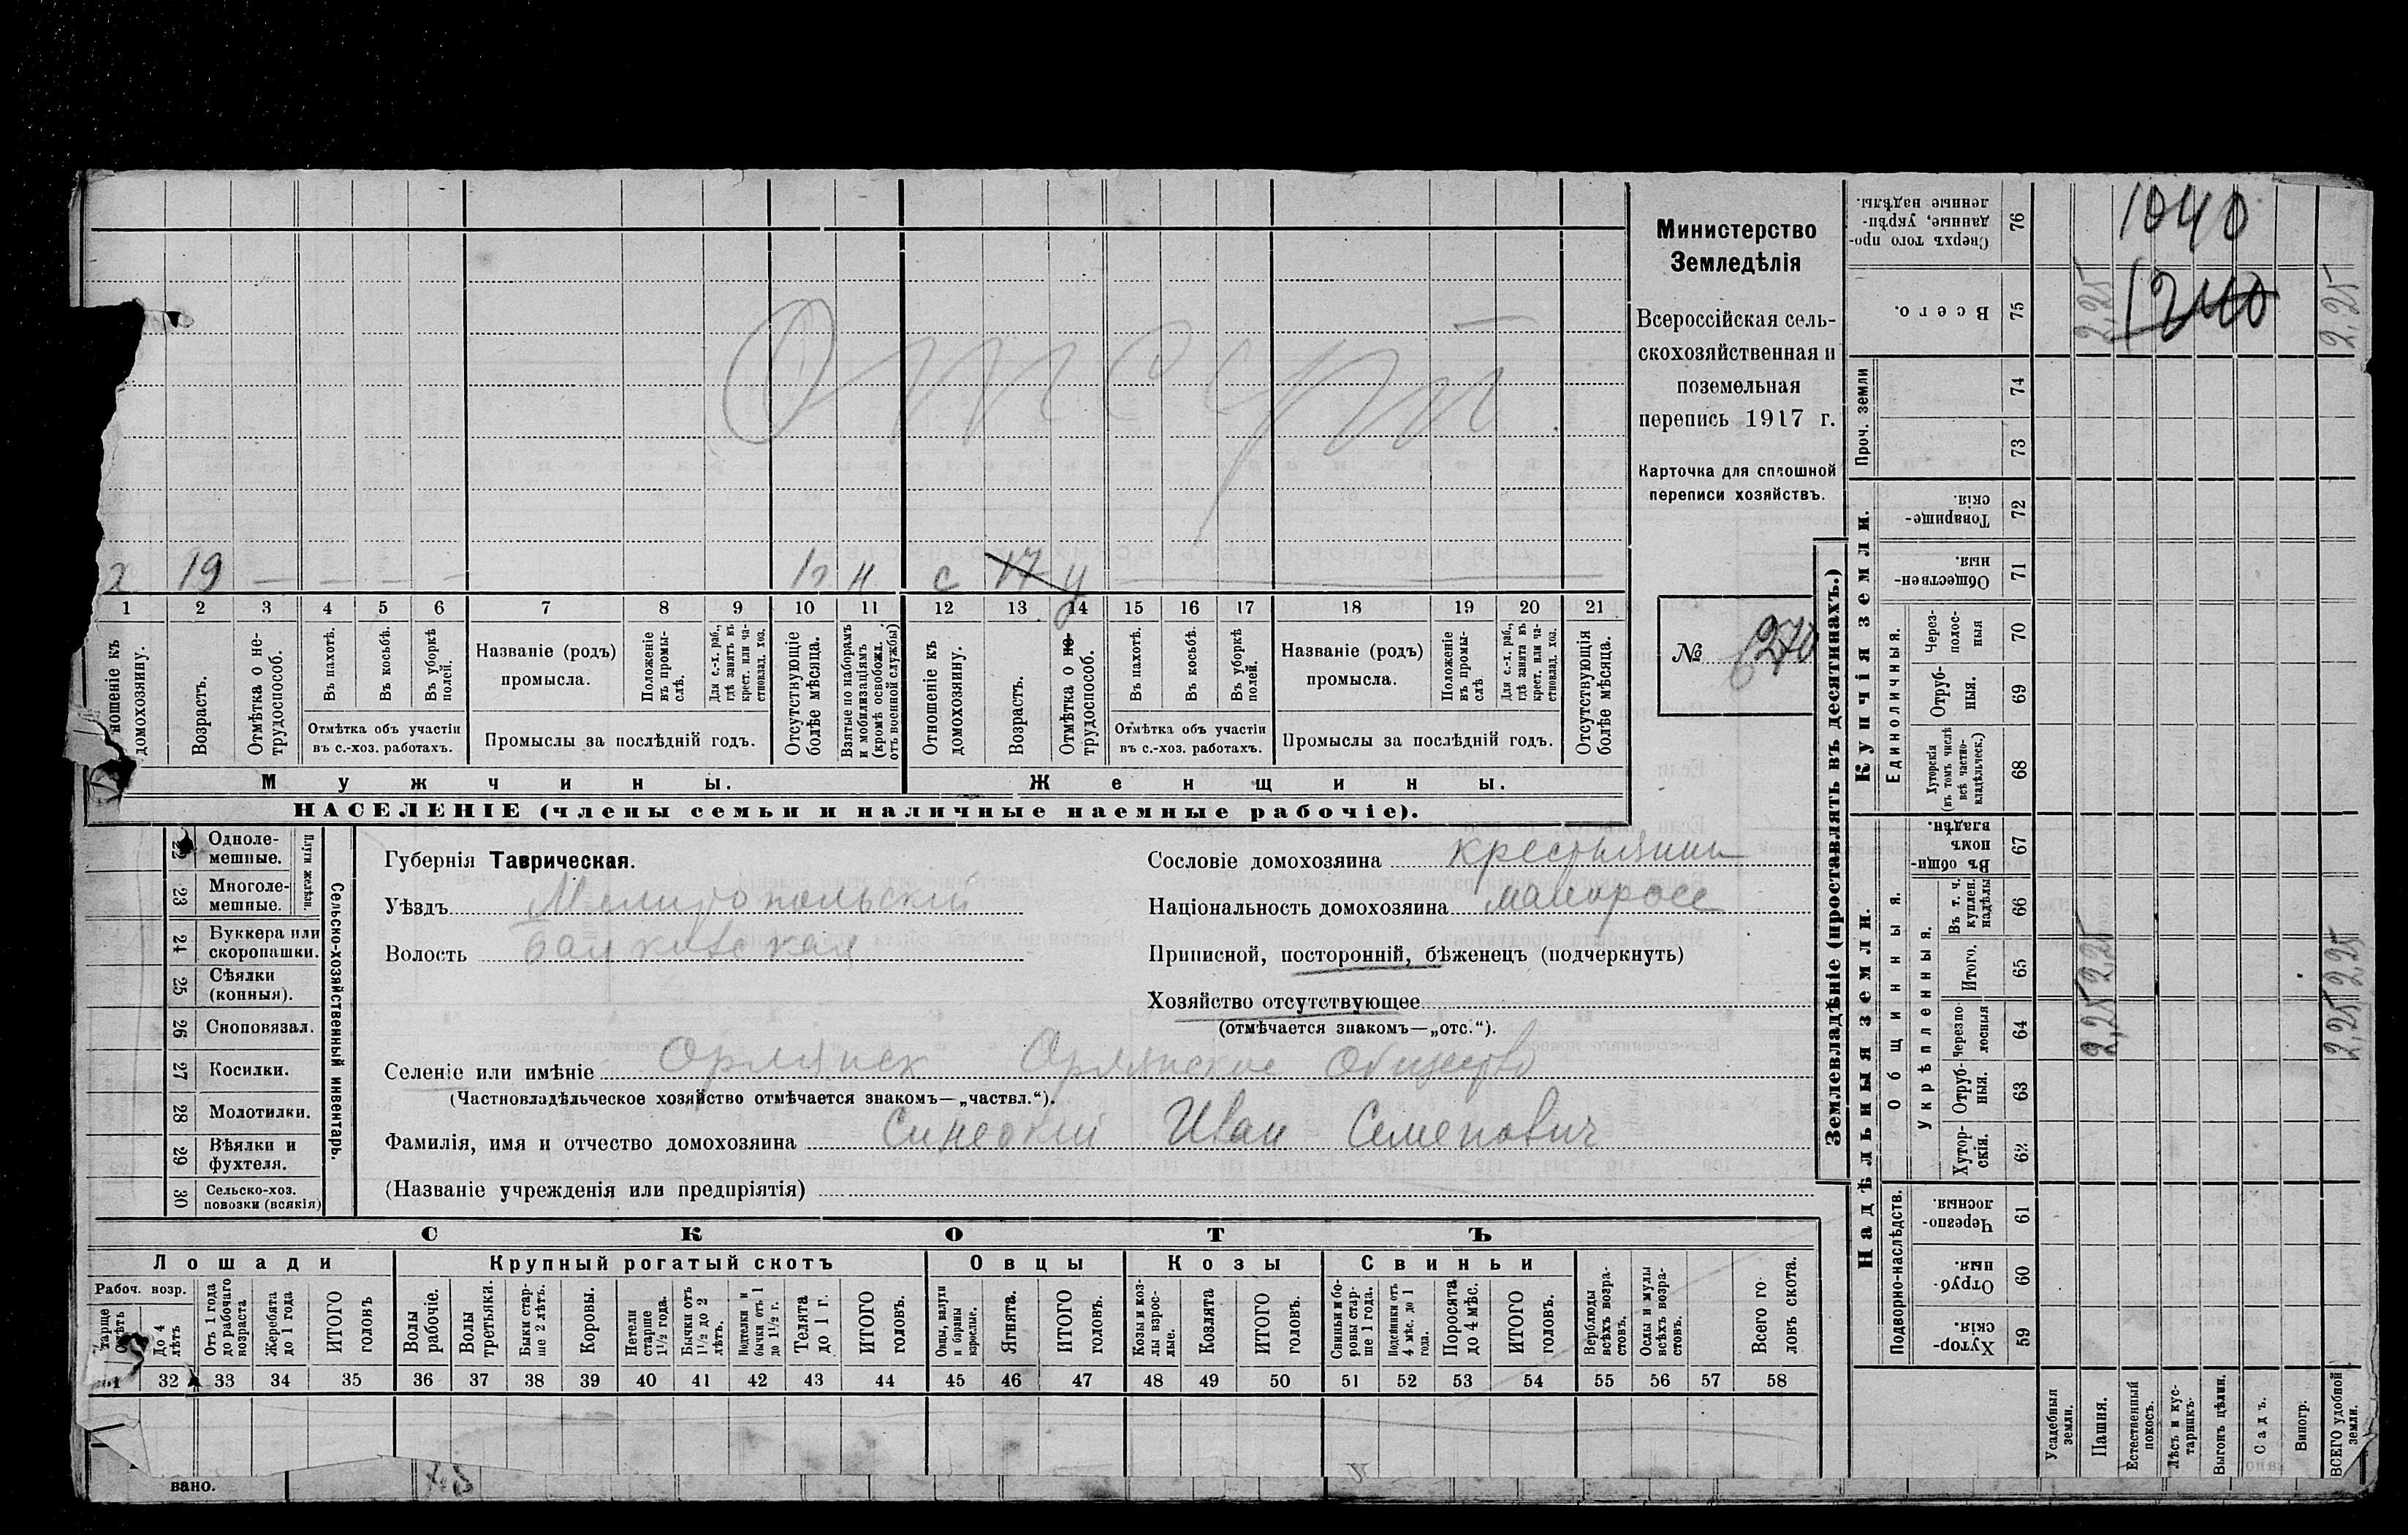 Министерство
Земледѣлія
Всероссійская сель-
скохозяйственная и
поземельная
перепись 1917 г.
Карточка для сплошной
переписи хозяйствъ.
№ 270
Отсут
19 — — — — 12 н с 17 у
1 2 3 4 5 6 7 8 9 10 11 12 13 14 15 16 17 18 19 20 21
ношеніе къ домохозяину.
Возрастъ.
Отмѣтка о не-трудоспособ.
Въ пахотѣ.
Въ косьбѣ.
Въ уборкѣ полей.
Отмѣтка объ участіи
въ с.-хоз. работахъ.
Названіе (родъ)
промысла.
Положеніе въ промы-слѣ.
Для с.-х. раб., гдѣ занятъ въ крест. или ча-стновлад. хоз.
Промыслы за послѣдній годъ.
Отсутствующіе болѣе мѣсяца.
Взятые по наборамъ и мобилизаціямъ (кромѣ освобожд. отъ военной службы)
Отношеніе къ домохозяину.
Возрастъ.
Отмѣтка о не-трудоспособ.
Въ пахотѣ.
Въ косьбѣ.
Въ уборкѣ полей.
Отмѣтка объ участіи
въ с.-хоз. работахъ.
Названіе (родъ)
промысла.
Положеніе въ промы-слѣ.
Для с.-х. раб., гдѣ занята въ крест. или ча-стновлад. хоз.
Промыслы за послѣдній годъ.
Отсутствующія болѣе мѣсяца.
Мужчины. Женщины.
НАСЕЛЕНІЕ (члены семьи и наличные наемные рабочіе).
Сельско-хозяйственный инвентарь.
Плуги желѣзн.
22 Одноле-мешные.
23 Многоле-мешные.
24 Буккера или скоропашки.
25 Сѣялки (конныя).
26 Сноповязал.
27 Косилки.
28 Молотилки.
29 Вѣялки и фухтеля.
30 Сельско-хоз. повозки (всякія)
Губернія Таврическая.
Уѣздъ Мелитопольскій
Волость Балковская
Сословіе домохозяина крестьянин
Національность домохозяина малоросс
Приписной, посторонній, бѣженецъ (подчеркнуть)
Хозяйство отсутствующее
(отмѣчается знакомъ—„отс.“).
Селеніе или имѣніе Орлянск Орлянское Общество
(Частновладѣльческое хозяйство отмѣчается знакомъ—„частвл.“).
Фамилія, имя и отчество домохозяина Иван Семенович
(Названіе учрежденія или предпріятія)
СКОТЪ
Лошади Крупный рогатый скотъ Овцы Козы Свиньи
Рабоч. возр.
До 4 лѣтъ
Отъ 1 года до рабочаго возраста
Жеребята до 1 года
ИТОГО головъ
Волы рабочіе.
Волы третьяки.
Быки стар-ше 2 лѣтъ.
Коровы.
Нетели старше 1 1/2 года.
Бычки отъ 1 1/2 до 2 лѣтъ.
Подтелки и бычки отъ 1 до 1 1/2 г.
Телята до 1 г.
ИТОГО головъ.
Овцы, валухи и бараны взрослые.
Ягнята.
ИТОГО головъ.
Козы и коз-лы взрос-лые.
Козлята
ИТОГО головъ.
Свиньи и бо-ровы стар-ше 1 года.
Подсвинки отъ 4 мѣс. до 1 года.
Поросята до 4 мѣс.
ИТОГО головъ.
Верблюды всѣхъ возра-стовъ.
Ослы и мулы всѣхъ возра-стовъ.
Всего го-ловъ скота.
32 33 34 35 36 37 38 39 40 41 42 43 44 45 46 47 48 49 50 51 52 53 54 55 56 57 58
вано.
Землевладѣніе (проставлять въ десятинахъ.)
Надѣльныя земли. Купчія земли. Проч. земли
Подворно-наслѣдств.
Общинныя.
Укрѣпленныя.
Единоличныя.
Хутор-скія. 59
Отруб-ныя. 60
Черезпо-лосныя 61
Хутор-скія. 62
Отруб-ныя. 63
Черезпо-лосныя 64
Итого. 65
Въ т. ч. куплен. надѣлы 66
Въ общи-номъ владѣн. 67
Хуторскія (въ томъ числѣ всѣ частно-владѣльческ.) 68
Отруб-ныя. 69
Через-полос-ныя 70
Обществен-ныя. 71
Товарище-скія. 72
73
74
Всего. 75
Сверхъ того про-данные, укрѣп-ленные надѣлы. 76
Усадебныя земли.
Пашня.
Естественный покосъ.
Лѣсъ и кус-тарникъ.
Выгонъ цѣлин.
Садъ.
Виногр.
ВСЕГО удобной земли.
2,25 2,25 2,25
2,25 2,25 2,25
1040
1240